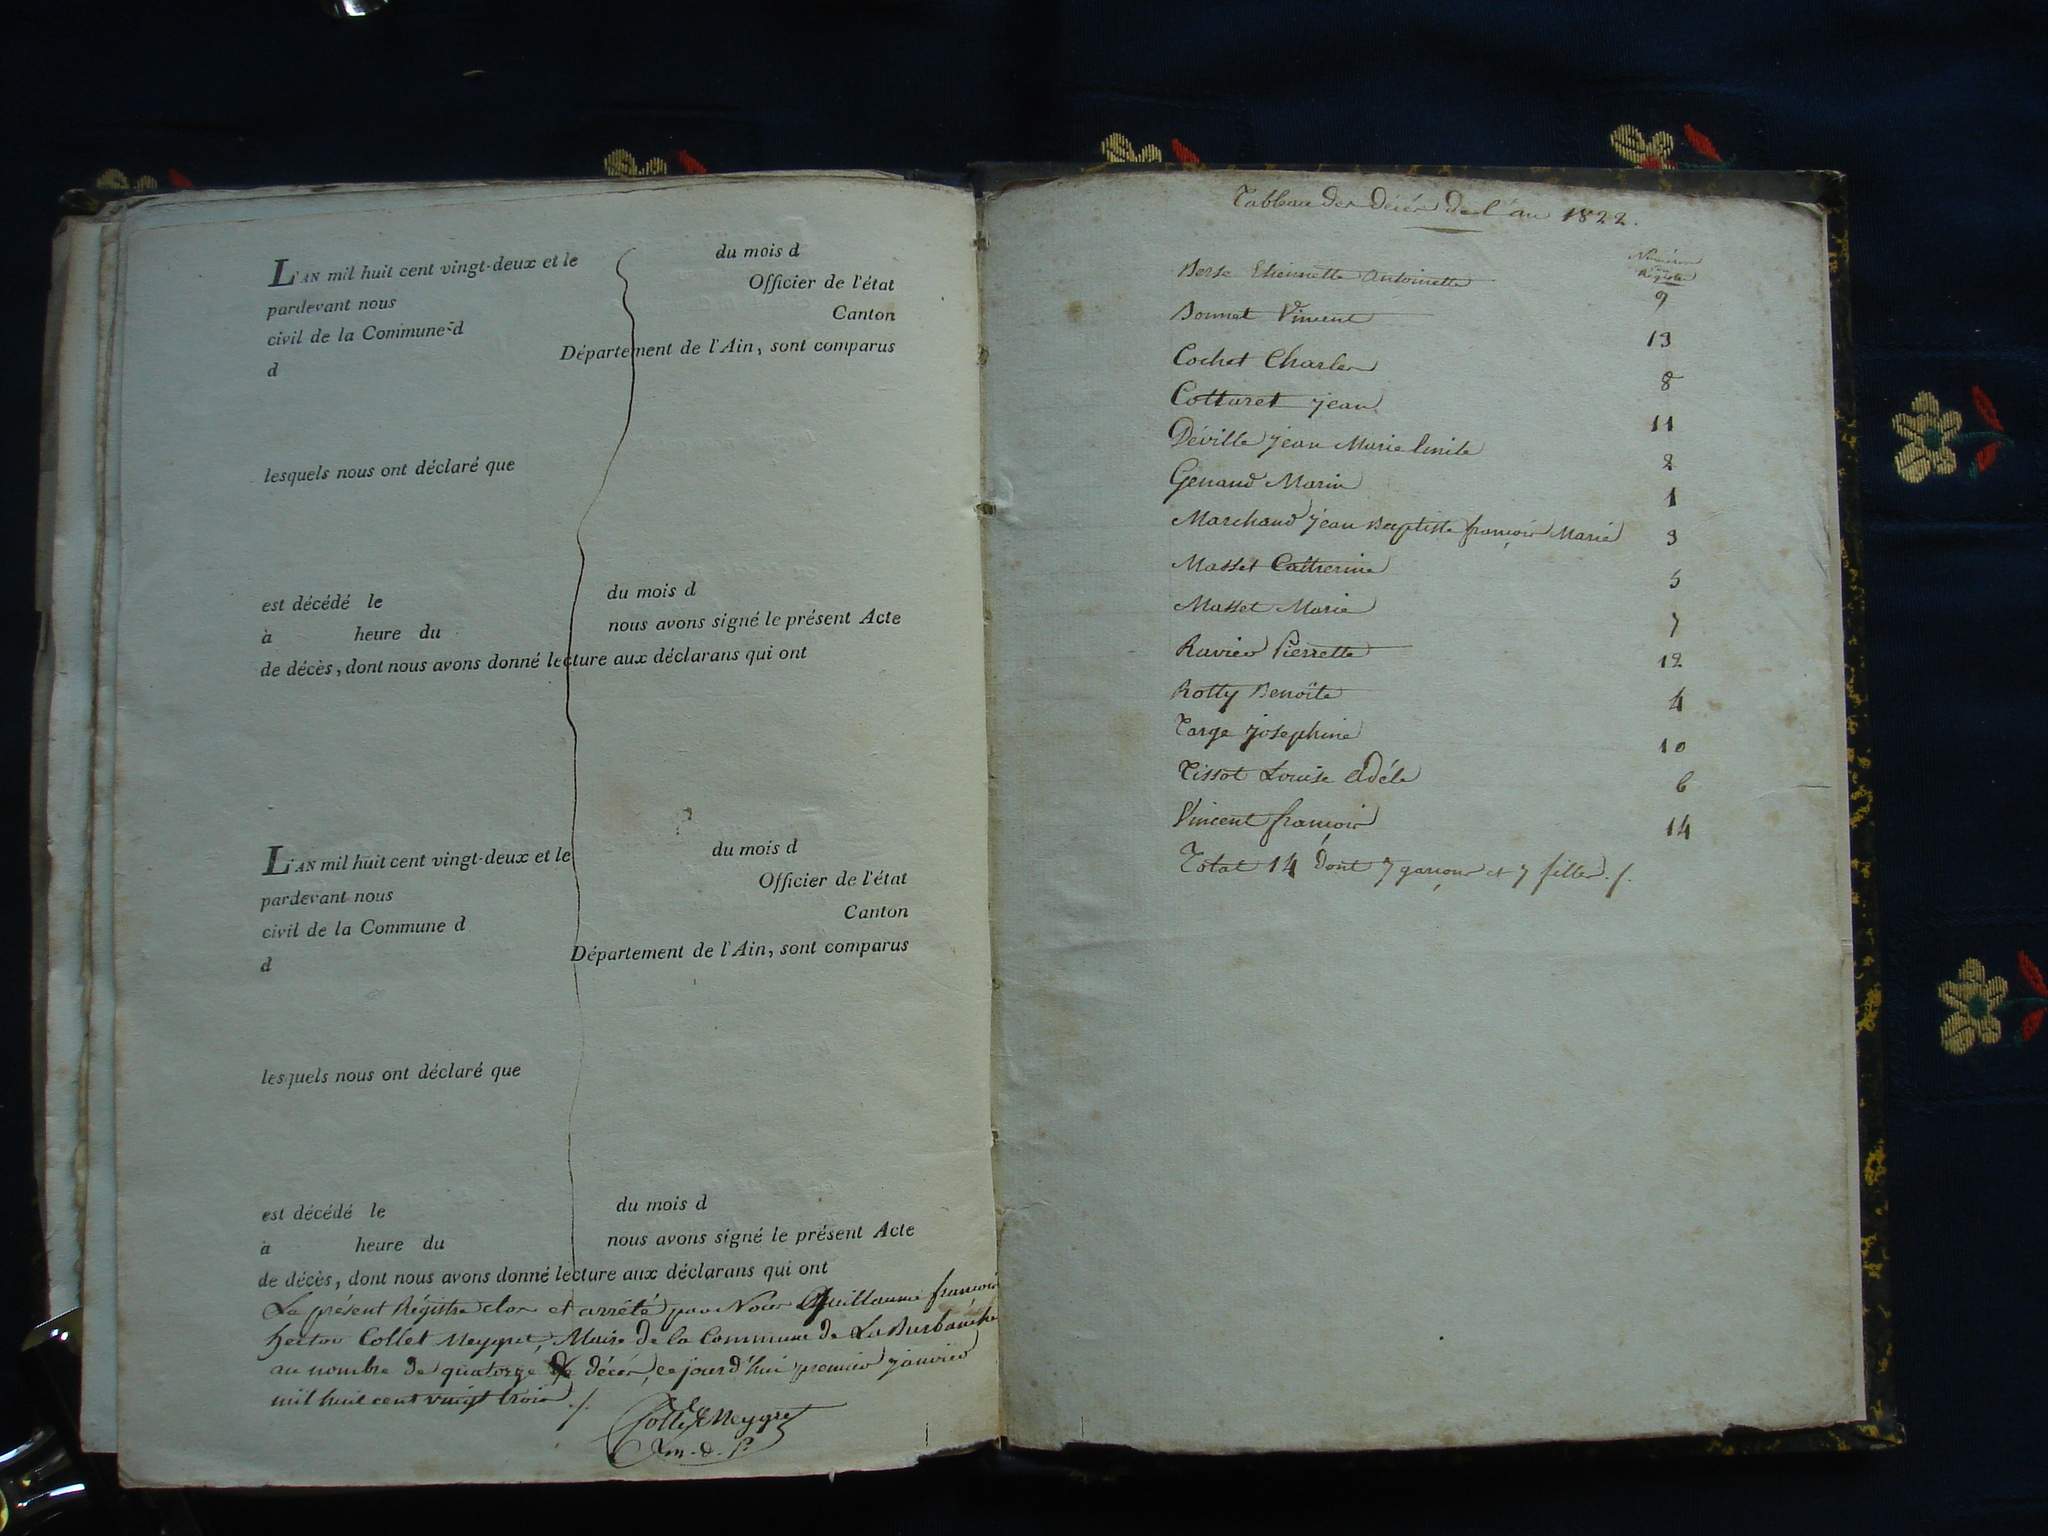 L'AN mil huit cent vingt-deux et le du mois d
pardevant nous Officier de l'état
civil de la Commune d Canton
d Département de l'Ain, sont comparus
lesquels nous ont déclaré que
est décédé le du mois d
à heure du nous avons signé le présent Acte
de décès, dont nous avons donné lecture aux déclarans qui ont
L'AN mil huit cent vingt-deux et le du mois d
pardevant nous Officier de l'état
civil de la Commune d Canton
d Département de l'Ain, sont comparus
lesquels nous ont déclaré que
est décédé le du mois d
à heure du nous avons signé le présent Acte
de décès, dont nous avons donné lecture aux déclarans qui ont
Le présent Régistre clos et arrêté par Nous Guillaume françois
hector Collet Meygret, Maire de la Commune de La Burbanche
au nombre de quatorze décès, ce jourd'hui premier janvier
mil huit cent vingt trois ./.
Collet Meygret
Tableau des décès de l'an 1822.
Numéros
au
Régistre
Berse Etiennette Antoinette 9
Bonnet Vincent 13
Cochet Charles 8
Cotturet jean 11
Déville jean Marie Emile 2
Genaud Marin 1
Marchand jean Baptiste françois Marie 3
Masset Catherine 5
Masset Marie 7
Ravier Pierrette 12
Rotty Benoîte 4
Targe josephine 10
Tissot Louise Adéle 6
Vincent françois 14
Total 14 dont 7 garçons et 7 filles ./.